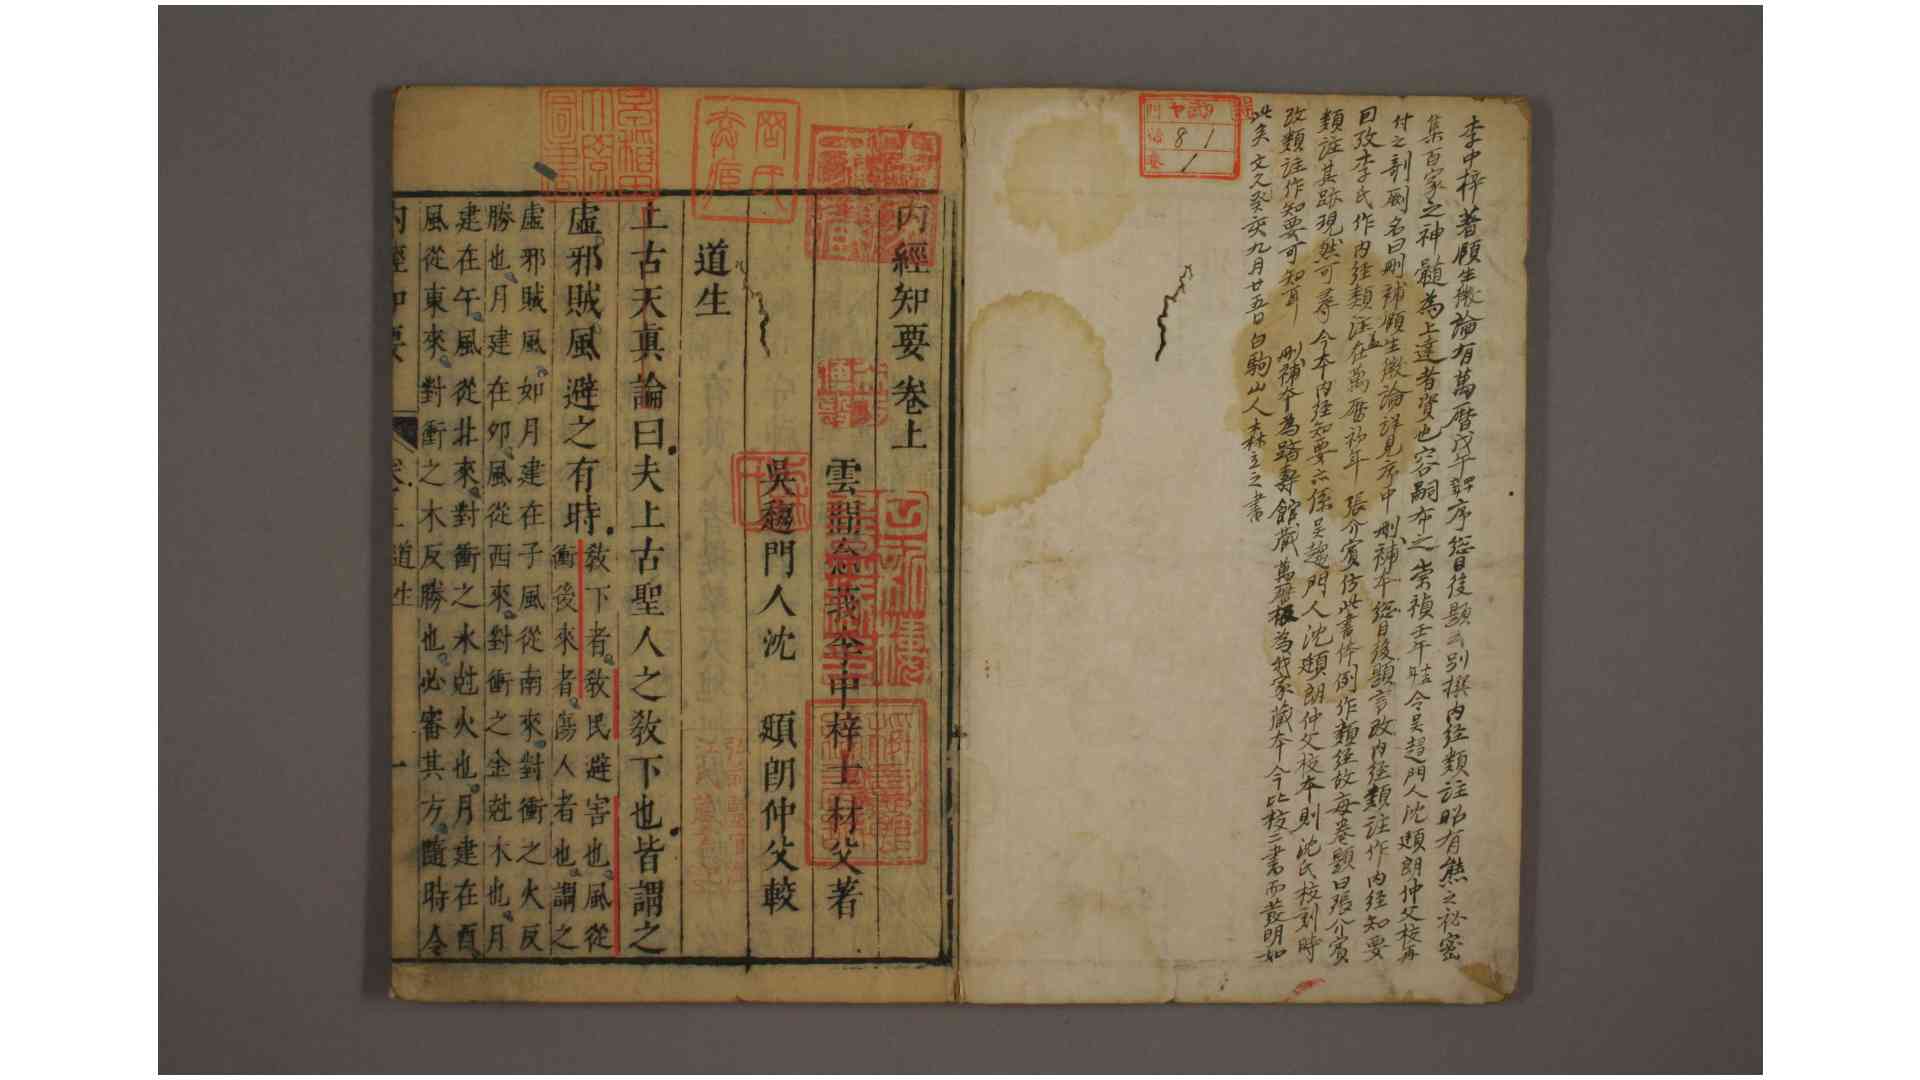 李中梓著頤生微論有萬曆戊午自序總目後題云別撰內経類註昭有熊之祕密
集百家之神髓為上達者資也容嗣布之崇禎壬午 令吴趨門人沈頲朗仲父校再
付之剞劂名曰刪補頤生微論詳見序中刪補本総目後題言改内経類註作内経知要
囙攷李氏作内経類注盖在萬暦初年張介賓仿此書体例作類経故每卷題曰張介賓
類註其跡現然可尋今本内経知要亦係吴趨門人沈頲朗仲父校本則沈氏校刻時
改類註作知要可知耳刪補本為躋壽館蔵萬暦板為我家蔵本今比校二書而發明如
此矣文久癸亥九月廿五日白駒山人森立之書
8 1
1
內經知要卷上
雲間念莪李中梓士材父著
吳趨門人沈 頲朗仲父較
道生
上古天真論曰夫上古聖人之敎下也皆謂之
虛邪賊風避之有時敎下者敎民避害也風從
衝後來者傷人者也謂之
虛邪賊風如月建在子風從南來對衝之火反
勝也月建在卯風從西來對衝之金尅木也月
建在午風從北來對衝之水尅火也月建在酉
風從東來對衝之木反勝也必審其方隨時令
內經知要 卷上 道生 一